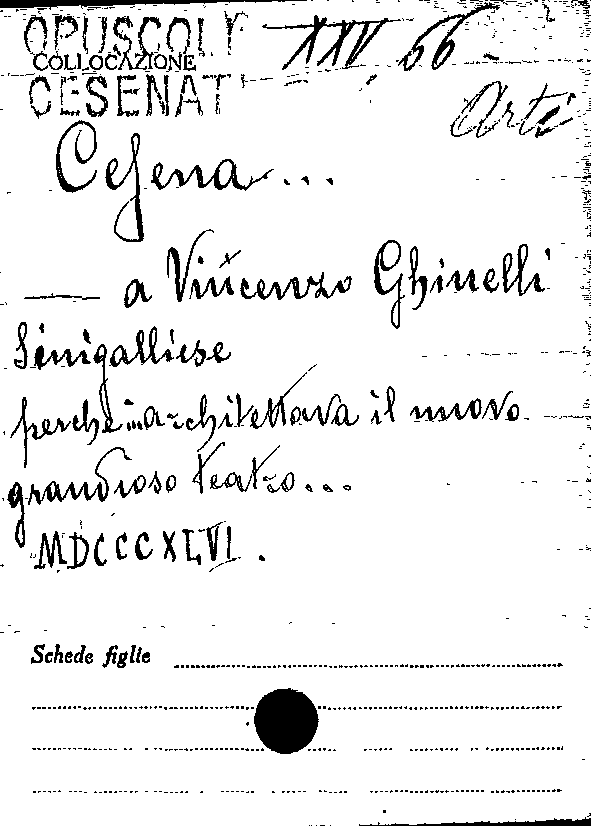 OPUSCOLI XXV, 66
COLLOCAZIONE
CESENATI
Arti
Cesena...
— a Vincenzo Ghinelli
Sinigalliese
perche architettava il nuovo
grandioso teatro...
MDCCCXLVI.
Schede figlie